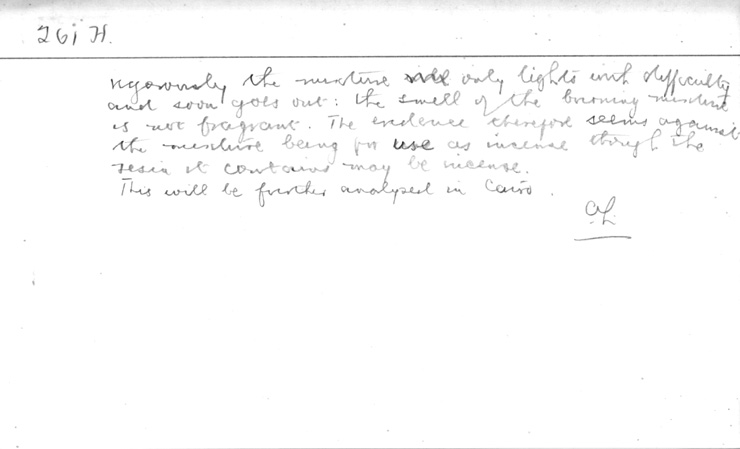 261 H.
vigorously the mixture will only lights with difficulty
and soon goes out: the smell of the burning mixture
is not fragrant. The evidence therefore seems against
the mixture being for use as incense though the
resin it contains may be incense.
This will be further analysed in Cairo.
AL